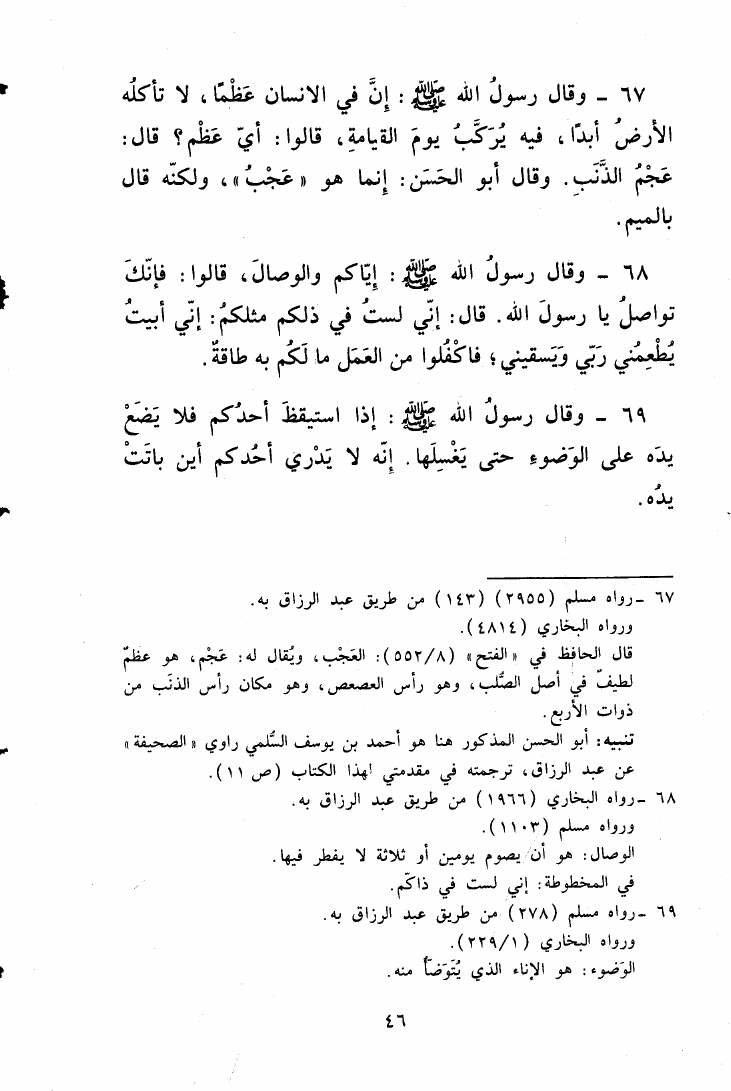 ٦٧ - وقال رسولُ الله ﷺ : إِنَّ في الانسان عَظْمًا، لا تأكلُه
الأرضُ أبدًا، فيه يُرَكَّبُ يومَ القيامةِ، قالوا: أيّ عَظْم؟ قال:
عَجْمُ الذَّنَبِ. وقال أبو الحَسَن: إنما هو «عَجْبُ»، ولكنّه قال
بالميم.
٦٨ - وقال رسولُ الله ﷺ : إيّاكم والوصالَ، قالوا: فإنّكَ
تواصلُ يا رسولَ الله. قال: إنّي لستُ في ذلكم مثلكمُ: إنّي أبيتُ
يُطْعِمُني رَبّي وَيَسقيني؛ فاكْفُلوا من العَمَل ما لَكُم به طاقةٌ.
٦٩ - وقال رسولُ الله ﷺ : إذا استيقظَ أحدُكم فلا يَضَعْ
يدَه على الوَضوءِ حتى يَغْسِلَها. إنّه لا يَدْري أحُدكم أين باتَتْ
يدُه.
٦٧ - رواه مسلم (٢٩٥٥) (١٤٣) من طريق عبد الرزاق به.
ورواه البخاري (٤٨١٤).
قال الحافظ في «الفتح» (٥٥٢/٨): العَجْب، ويُقال له: عَجْم، هو عظمٌ
لطيفٌ في أصل الصُّلب، وهو رأس العصعص، وهو مكان رأس الذنَب من
ذوات الأربع.
تنبيه: أبو الحسن المذكور هنا هو أحمد بن يوسف السُّلمي راوي «الصحيفة»
عن عبد الرزاق، ترجمته في مقدمتي لهذا الكتاب (ص ١١).
٦٨ - رواه البخاري (١٩٦٦) من طريق عبد الرزاق به.
ورواه مسلم (١١٠٣).
الوصال: هو أن يصوم يومين أو ثلاثة لا يفطر فيها.
في المخطوطة: إني لست في ذاكم.
٦٩ - رواه مسلم (٢٧٨) من طريق عبد الرزاق به.
ورواه البخاري (٢٢٩/١).
الوَضوء: هو الإناء الذي يُتَوَضّأ منه.
٤٦